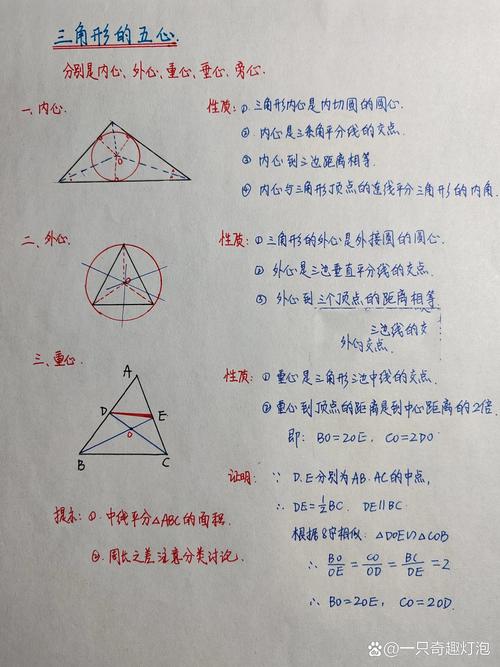 三角形的五心.
分别是内心、外心、重心、垂心、旁心.
一、内心.
性质: ①. 三角形内心是内切圆的圆心.
②. 内心是三条角平分线的交点.
③ 内心到三边距离相等.
④ 内心与三角形顶点的连线平分三角形的内角.
O
二、外心.
性质: ① 三角形的外心是外接圆的圆心.
② 外心是三边垂直平分线的交点.
③ 外心到三个顶点的距离相等.
三边线的交
外心的交点.
三、重心.
A
D
E
O
B
C
性质: ① 重心是三角形三边中线的交点.
② 重心到顶点的距离是到中心距离的2倍.
即: BO=2OE, CO=2DO
证明: ∵ D.E分别为AB.AC的中点,
∴ DE=1/2BC, DE∥BC
根据8字相似: △DOE∽△COB
∴ BO/OE = CO/OD = BC/DE = 2
∴ BO=2OE, CO=2OD.
提示: ①. 中线平分△ABC的面积.
②. 周长之差注意分类讨论.
@一只奇趣灯泡